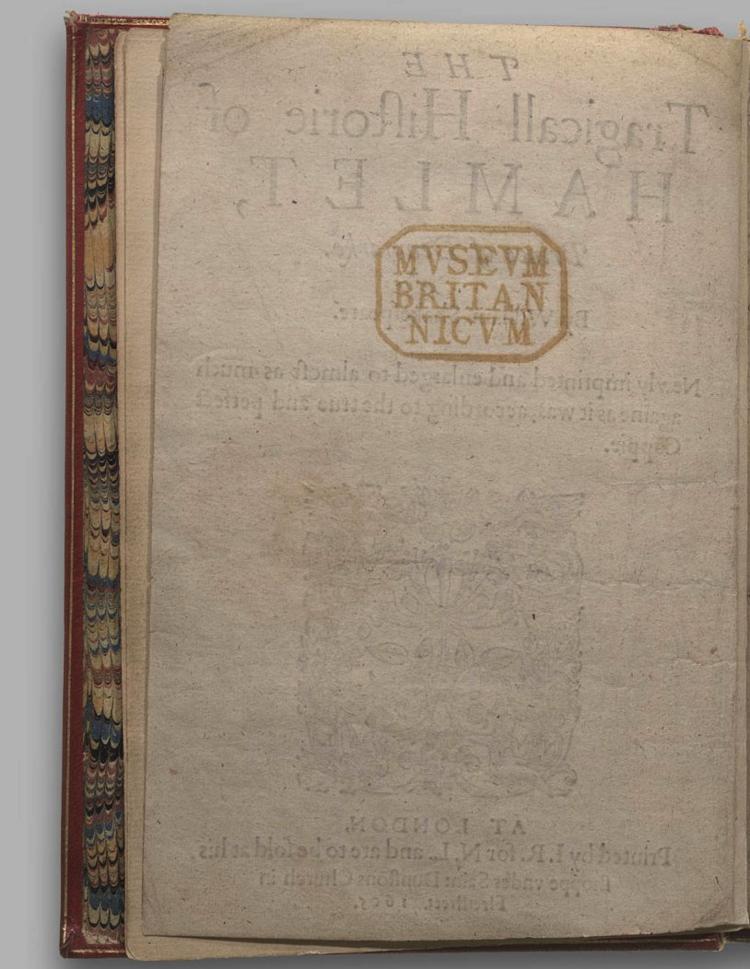 THE
Tragicall Hiſtorie of
HAMLET,
MVSEVM
BRITAN
NICVM
Newly imprinted and enlarged to almoſt as much
againe as it was, according to the true and perfect
Coppie.
AT LONDON,
Printed by I. R. for N. L. and are to be ſold at his
ſhoppe vnder Saint Dunſtons Church in
Fleetſtreet. 1605.